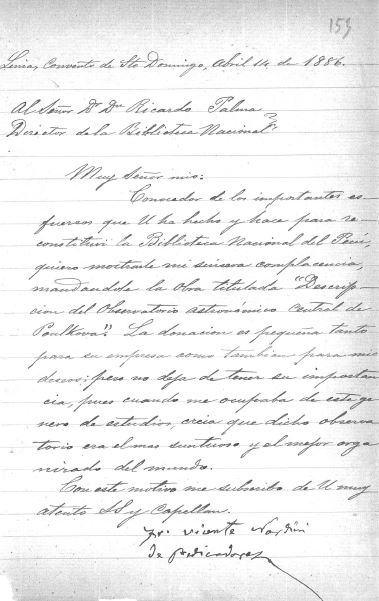 159
Lima, Convento de Sto Domingo, Abril 14 de 1886.
Al Señor Dr Dn Ricardo Palma
Director de la Biblioteca Nacional
Muy Señor mio:
Conocedor de los importantes es-
fuersos que U ha hecho y hace para re-
constituir la Biblioteca Nacional del Perú,
quiero mostrarle mi sincera complacencia,
mandandole la Obra titulada "Descrip-
cion del Observatorio astronómico central de
Poulkova". La donacion es pequeña tanto
para su empresa como tambien para mis
deseos: pero no deja de tener su importan-
cia, pues cuando me ocupaba de este ge-
nero de estudios, creia que dicho observa-
torio era el mas suntuoso y el mejor orga-
nizado del mundo.
Con este motivo me subscribo de U muy
atento SS y Capellan.
Fr. Vicente Nardini
de Predicadores